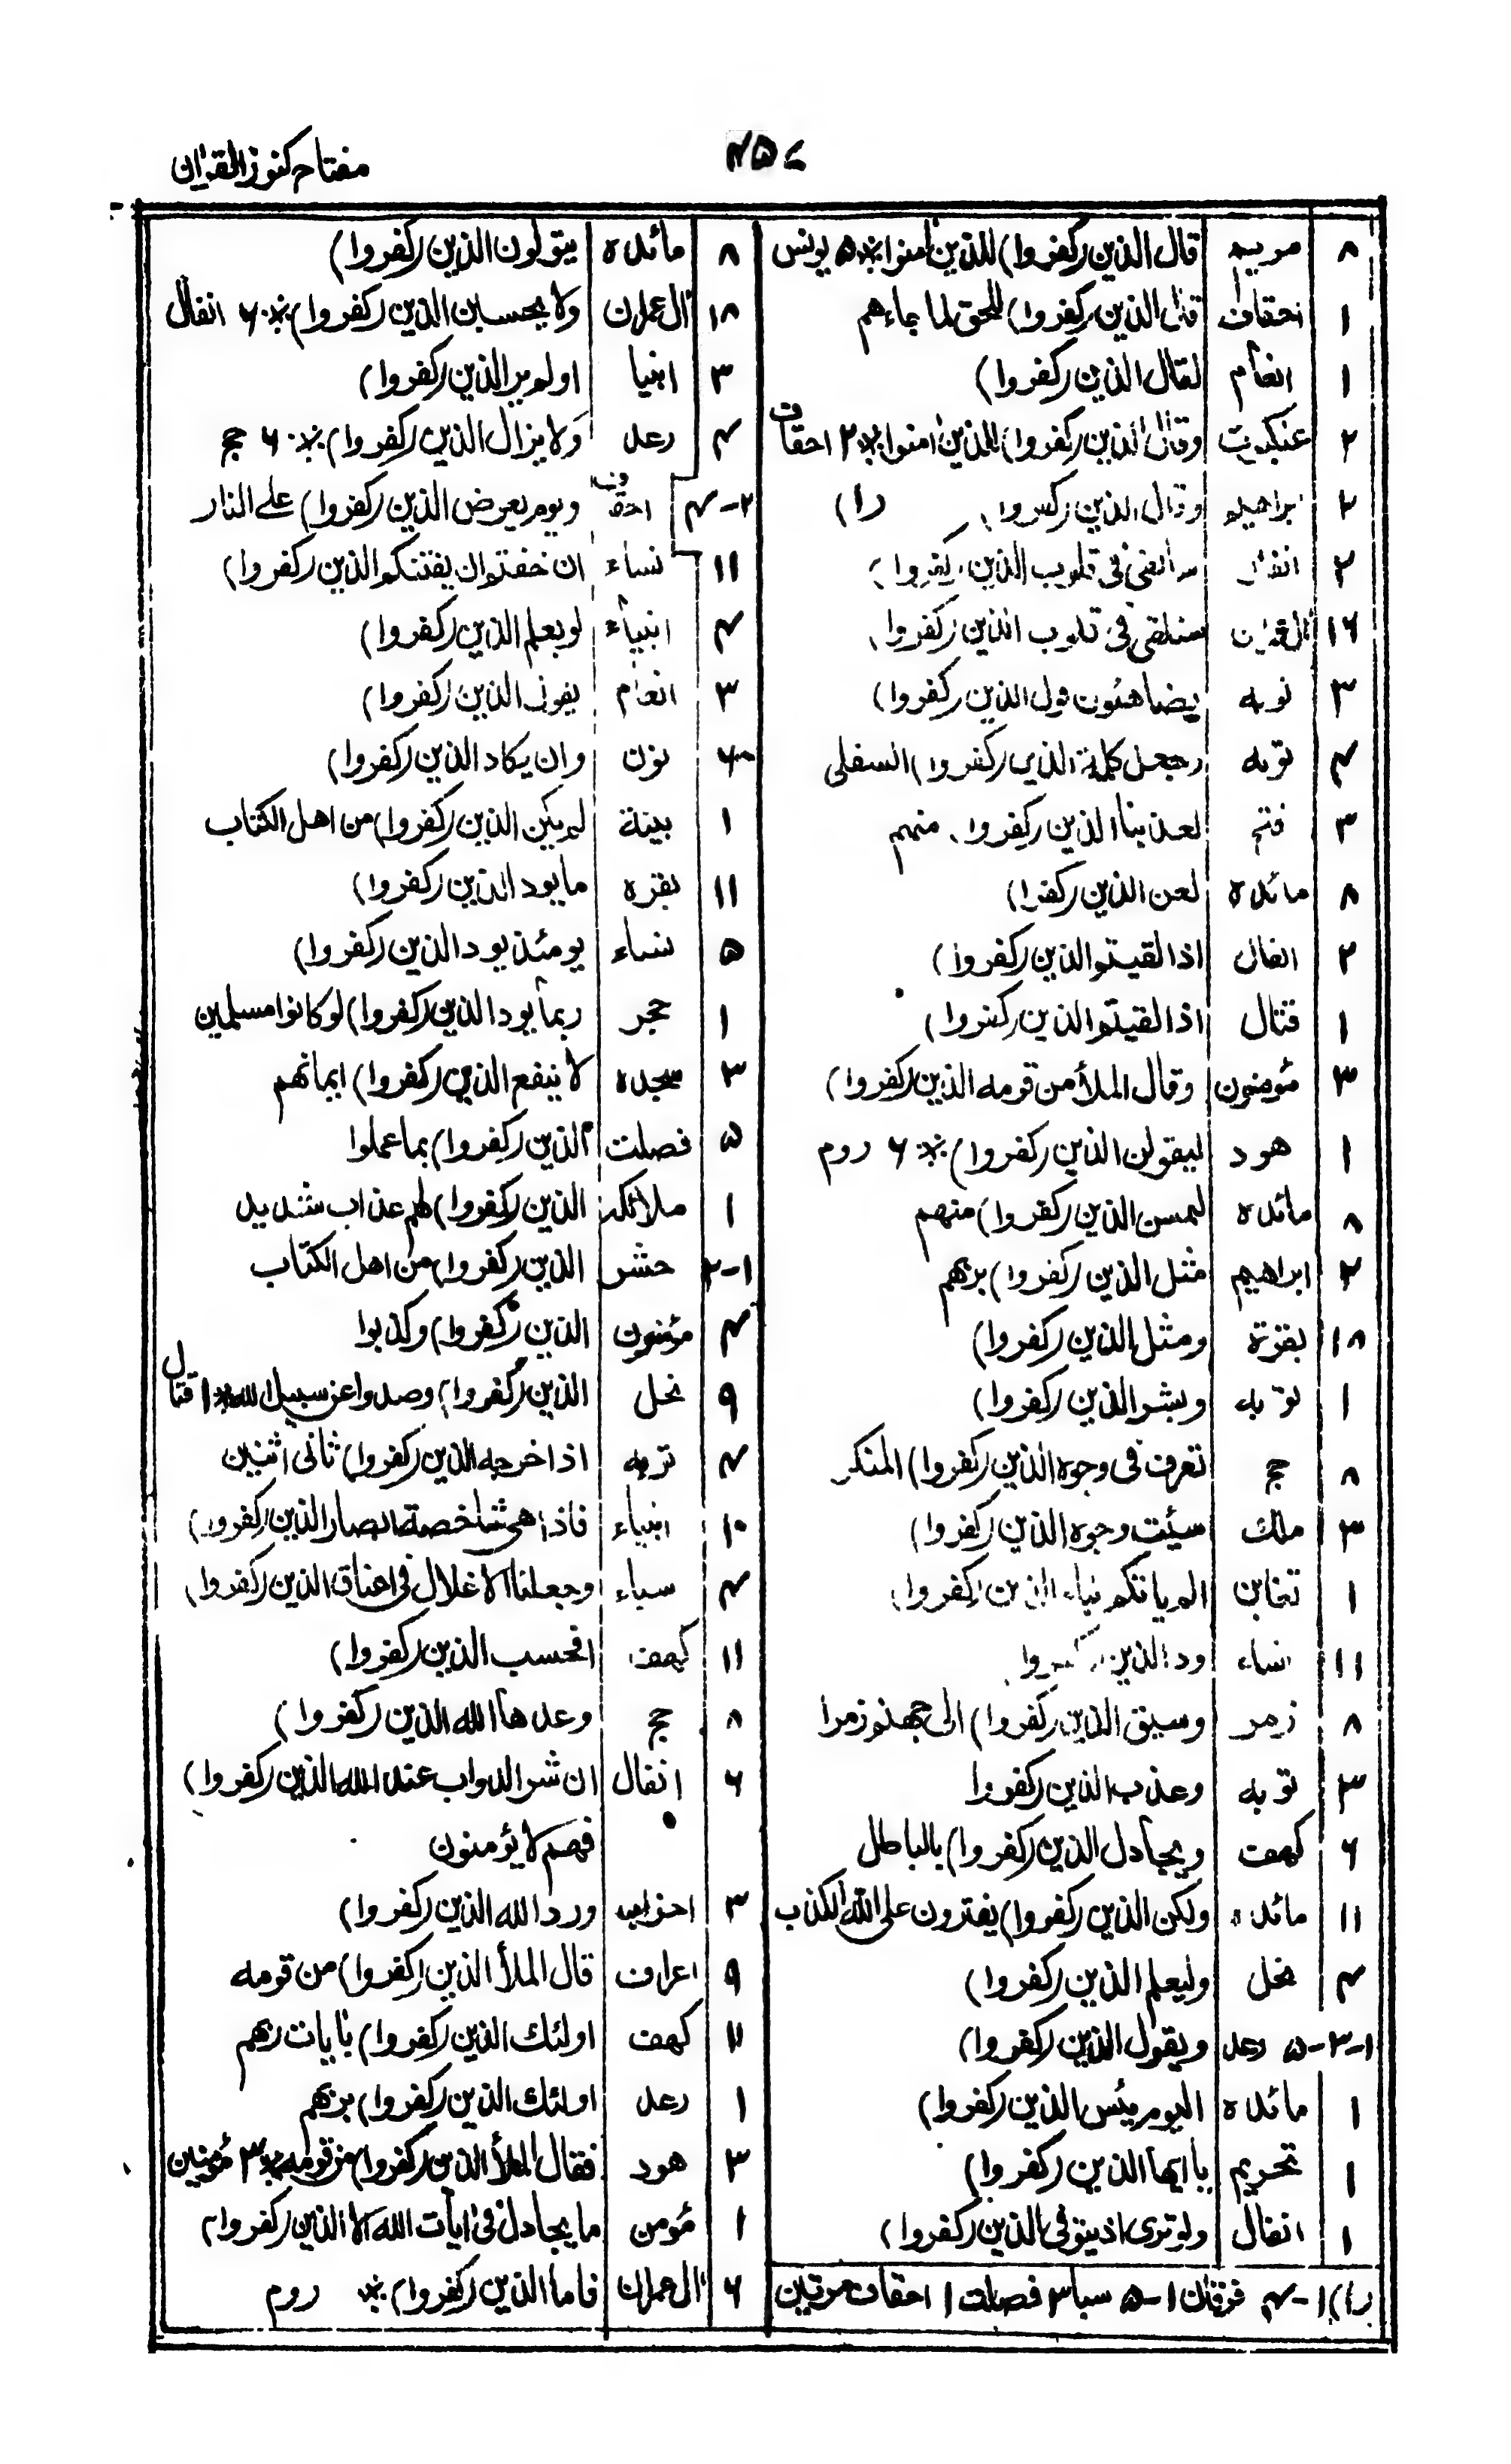 ۴۵۷
مفتاح كنوز القرآن
۸ مريم قال الذين (كفروا) للذين امنوا ※ ۵ يونس
۱ احقاف قال الذين (كفروا) للحق لما جاءهم
۱ انعام لقال الذين (كفروا)
۲ عنكبوت وقال الذين (كفروا) للذين امنوا ※ ۲ احقاف
۳ ابراهيم وقال الذين (كفروا) (۱)
۲ انفال سالقى فى قلوب الذين (كفروا)
۱۶ سنلقى فى قلوب الذين (كفروا)
۳ توبه يضاهئون قول الذين (كفروا)
۴ توبه وجعل كلمة الذين (كفروا) السفلى
۳ فتح لعذبنا الذين (كفروا) منهم
۸ مائده لعن الذين (كفروا)
۲ انفال اذا لقيتم الذين (كفروا)
۱ قتال اذا لقيتم الذين (كفروا)
۳ مؤمنون وقال الملأ من قومه الذين (كفروا)
۱ هود ليقولن الذين (كفروا) ※ ۶ روم
۸ مائده ليمسن الذين (كفروا) منهم
۲ ابراهيم مثل الذين (كفروا) بربهم
۱۸ بقرة ومثل الذين (كفروا)
۱ توبه وبشر الذين (كفروا)
۸ حج تعرف فى وجوه الذين (كفروا) المنكر
۳ ملك سيئت وجوه الذين (كفروا)
۱ تغابن الم ياتكم نباء الذين (كفروا)
۱۱ نساء ود الذين (كفروا)
۸ زمر وسيق الذين (كفروا) الى جهنم زمرا
۳ توبه وعذب الذين (كفروا
۶ كهف ويجادل الذين (كفروا) بالباطل
۱۱ مائده ولكن الذين (كفروا) يفترون على الله الكذب
۴ نحل وليعلم الذين (كفروا)
۱-۳-۵ رعد ويقول الذين (كفروا)
۱ مائده اليوم يئس الذين (كفروا)
۱ تحريم يا ايها الذين (كفروا)
۱ انفال ولو ترى اذ يتوفى الذين (كفروا)
(۱) ۱-۴ فرقان ۱-۵ سبا ۳ فصلت ۱ احقاف مرتين
۸ مائده يتولون الذين (كفروا)
۱۸ ال عمران ولا يحسبن الذين (كفروا) ※ ۶ انفال
۳ انبيا اولم ير الذين (كفروا)
۴ رعد ولا يزال الذين (كفروا) ※ ۶ حج
۲-۴ احقاف ويوم يعرض الذين (كفروا) على النار
۱۱ نساء ان خفتم ان يفتنكم الذين (كفروا)
۴ انبياء لو يعلم الذين (كفروا)
۳ انعام يقول الذين (كفروا)
نون وان يكاد الذين (كفروا)
۱ بينة لم يكن الذين (كفروا) من اهل الكتاب
۱۱ بقره ما يود الذين (كفروا)
۵ نساء يومئذ يود الذين (كفروا)
۱ حجر ربما يود الذين (كفروا) لو كانوا مسلمين
۳ سجده لا ينفع الذين (كفروا) ايمانهم
۵ فصلت الذين (كفروا) بما عملوا
۱ ملائكة الذين (كفروا) لهم عذاب شديد
۱-۲ حشر الذين (كفروا) من اهل الكتاب
۴ مؤمنون الذين (كفروا) وكذبوا
۹ نحل الذين (كفروا) وصدوا عن سبيل الله ※ ۱ قتال
۴ توبه اذ اخرجه الذين (كفروا) ثانى اثنين
۱۰ انبياء فاذا هى شاخصة ابصار الذين (كفروا)
۴ سباء وجعلنا الاغلال فى اعناق الذين (كفروا)
۱۱ كهف افحسب الذين (كفروا)
۸ حج وعدها الله الذين (كفروا)
۶ انفال ان شر الدواب عند الله الذين (كفروا)
فهم لا يؤمنون
۳ احزاب ورد الله الذين (كفروا)
۹ اعراف قال الملأ الذين (كفروا) من قومه
۱۱ كهف اولئك الذين (كفروا) بايات ربهم
۱ رعد اولئك الذين (كفروا) بربهم
۳ هود فقال الملأ الذين (كفروا) من قومه ※ ۳ مؤمنين
۱ مؤمن ما يجادل فى ايات الله الا الذين (كفروا)
۶ ال عمران فاما الذين (كفروا) ※ روم